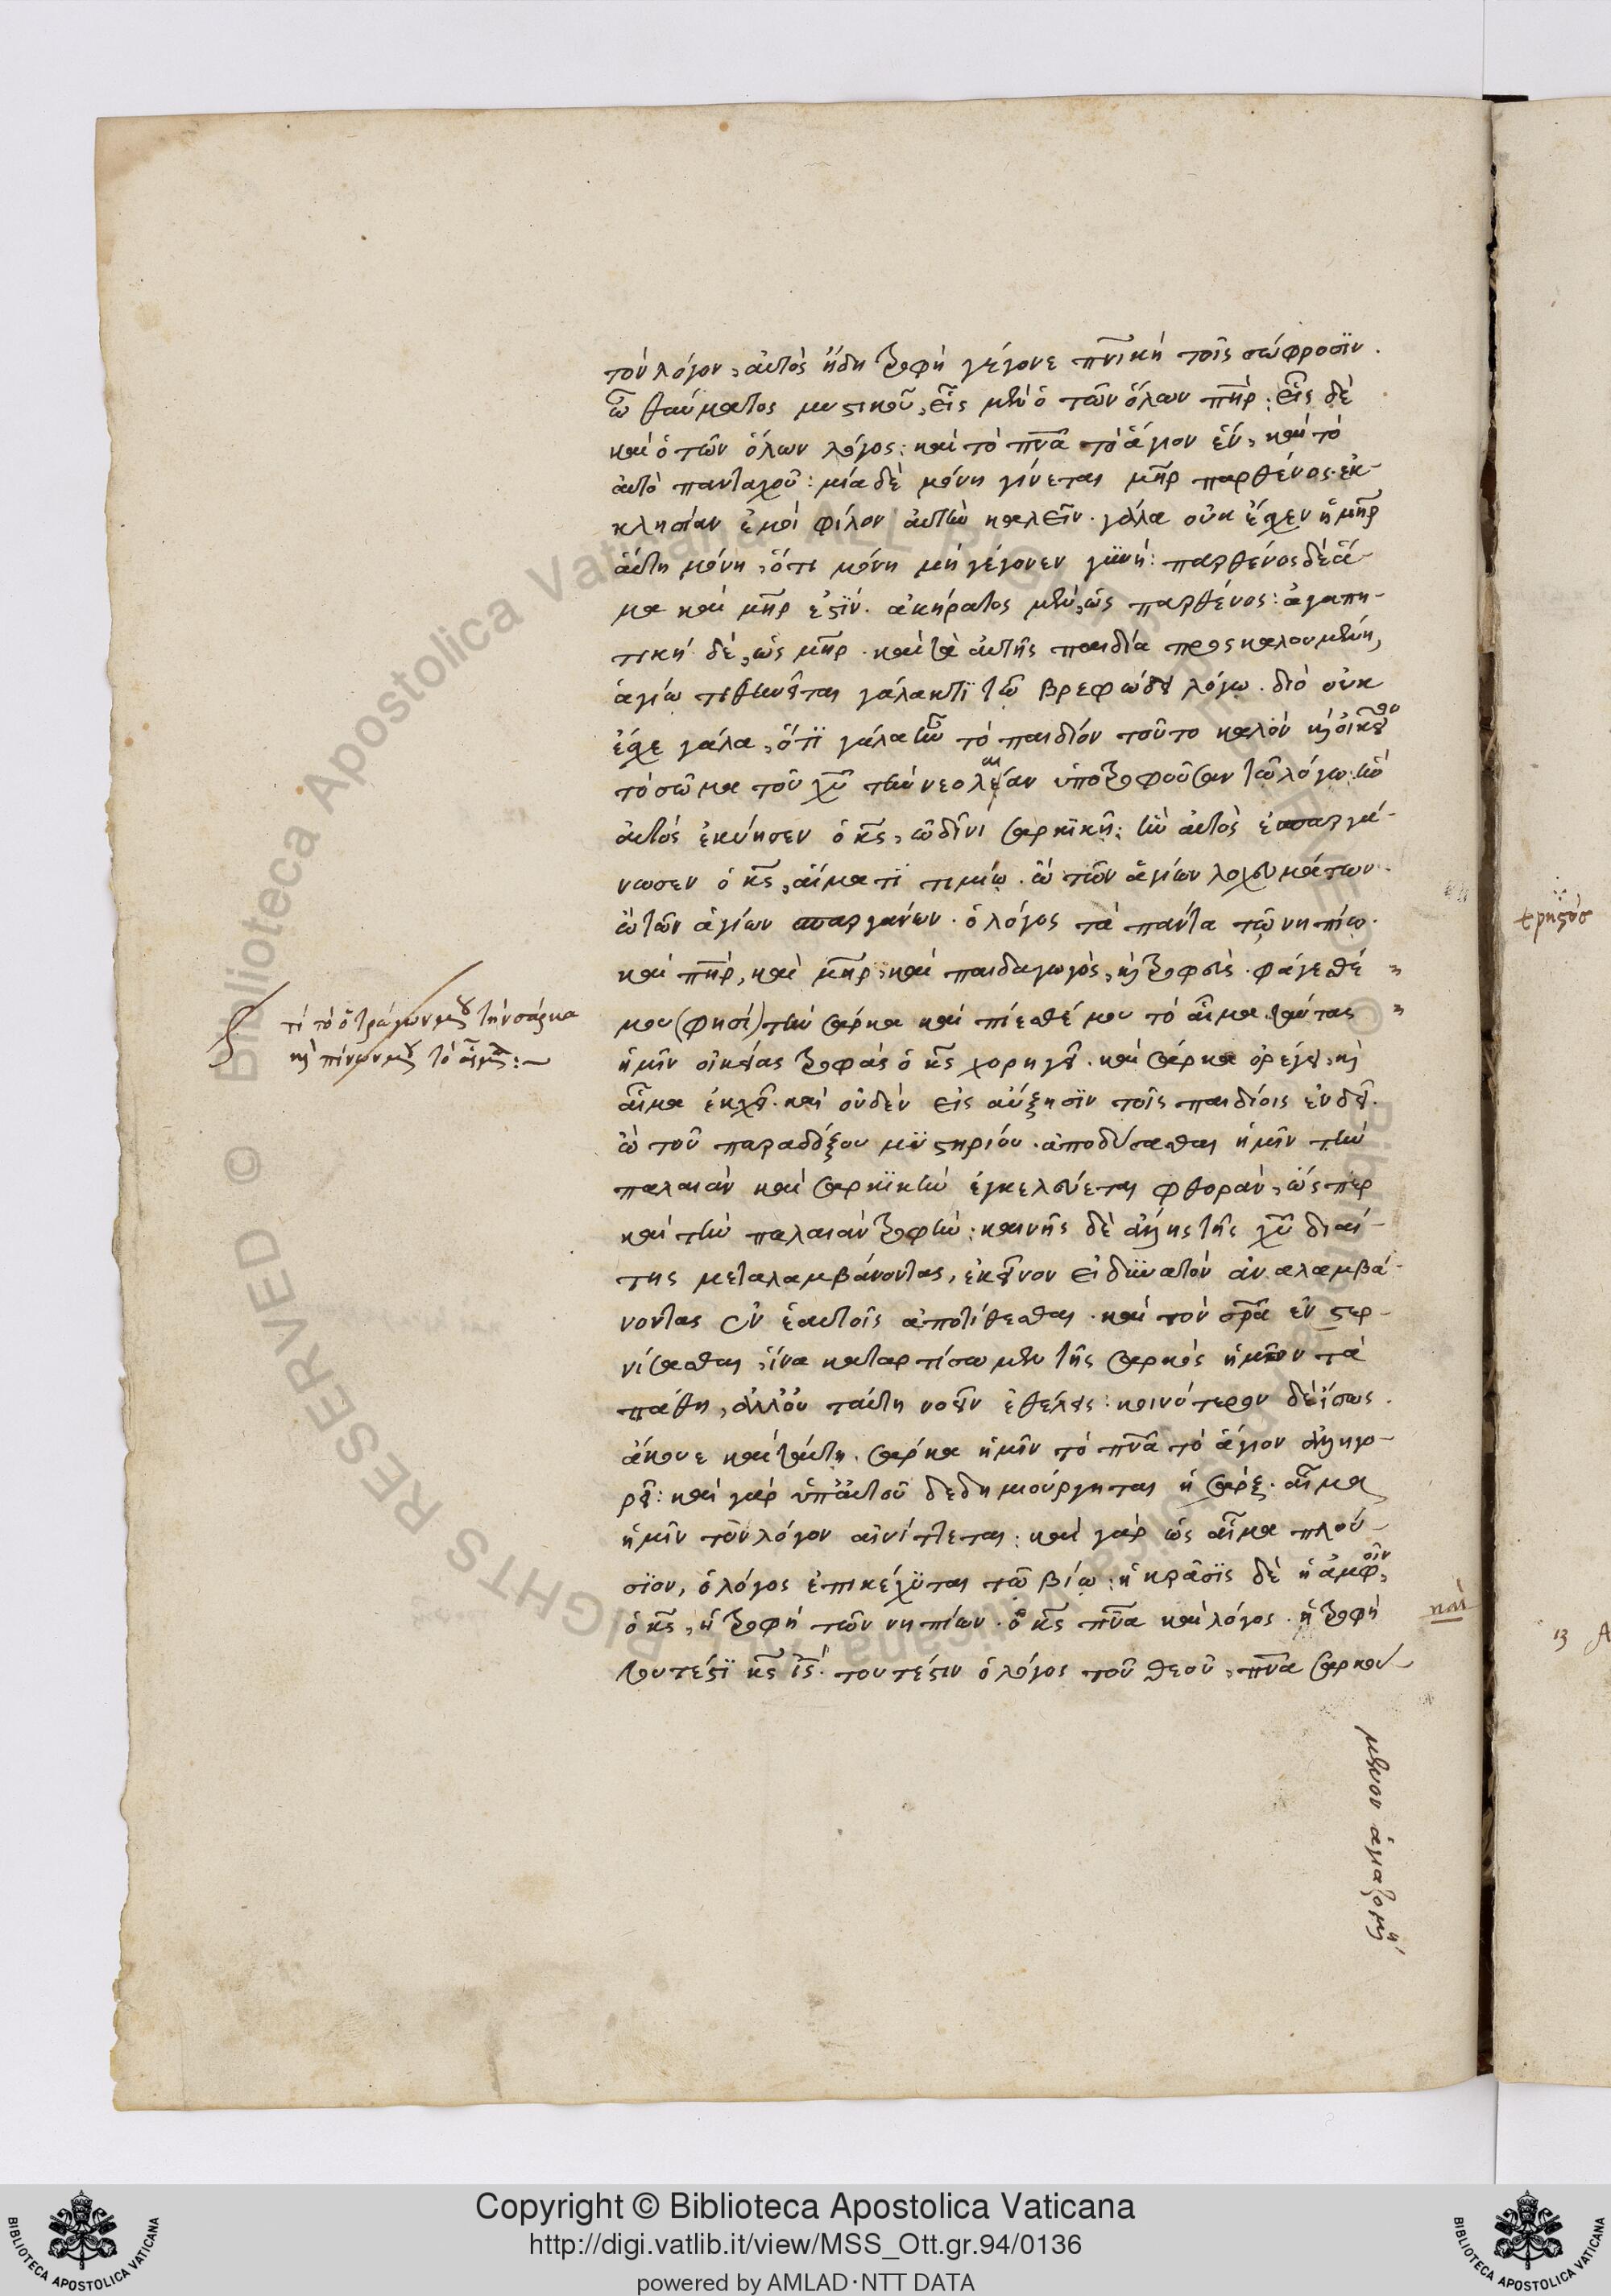 τὸν λόγον, αὐτὸς ἤδη τροφὴ γέγονε πνϊκὴ τοῖς σώφροσϊν.
ὢ θαύματος μυστικοῦ, εἷς μὲν ὁ τῶν ὅλων πηρ· εἷς δὲ
καὶ ὁ τῶν ὅλων λόγος· καὶ τὸ πνα τὸ ἅγιον ἕν, καὶ τὸ
αὐτὸ πανταχοῦ· μία δὲ μόνη γίνεται μηρ παρθένος· ἐκ-
κλησίαν ἐμοὶ φίλον αὐτὴν καλεῖν. γάλα οὐκ ἔσχεν ἡ μηρ
αὕτη μόνη, ὅτι μόνη μὴ γέγονεν γϋνή· παρθένος δὲ ἅ-
μα καὶ μηρ ἐστϊν. ἀκήρατος μὲν, ὡς παρθένος· ἀγαπη-
τικὴ δὲ, ὡς μηρ. καὶ τὰ αὐτῆς παιδία προσκαλουμένη,
ἁγίω τιθηνεῖται γάλακτϊ τῶ βρεφώδει λόγω. διὸ οὐκ
ἔσχε γάλα, ὅτϊ γάλα ἦν τὸ παιδίον τοῦτο καλὸν κὶ οἰκεῖον
τὸ σῶμα τοῦ χυ τὴν νεολαίαν ὑποτροφοῦσαν τῶ λόγω· ἣν
αὐτὸς ἐκύησεν ὁ κς, ὠδῖνι σαρκϊκῆ· ἣν αὐτὸς ἐσπαργά-
νωσεν ὁ κς, αἵματϊ τιμίω. ὢ τῶν ἁγίων λοχευμάτων.
ὢ τῶν ἁγίων σπαργάνων. ὁ λόγος τὰ πάντα τῶ νηπίω.
καὶ πηρ, καὶ μηρ, καὶ παιδαγωγὸς, κὶ τροφεύς. φάγεσθέ
μου (φησὶ) τὴν σάρκα καὶ πίεσθέ μου τὸ αἷμα. ταύτας
ἡμῖν οἰκείας τροφὰς ὁ κς χορηγεῖ. καὶ σάρκα ὀρέγει, κὶ
αἷμα ἐκχεῖ. καὶ οὐδὲν εἰς αὔξησϊν τοῖς παιδίοις ἐνδεῖ.
ὢ τοῦ παραδόξου μϋστηρίου. ἀποδύσασθαι ἡμῖν τὴν
παλαιὰν καὶ σαρκϊκὴν ἐγκελεύεται φθορὰν, ὥσπερ
καὶ τὴν παλαιὰν τροφήν· καινῆς δὲ ἄλλης τῆς χυ διαί-
της μεταλαμβάνοντας, ἐκεῖνον εἰ δϋνατὸν ἀναλαμβά-
νοντας ἐν ἑαυτοῖς ἀποτίθεσθαι. καὶ τὸν σρα ἐν στερ-
νίσασθαι, ἵνα καταρτίσωμεν τῆς σαρκὸς ἡμῶν τὰ
πάθη, ἀλλ' οὐ ταύτη νοεῖν ἐθέλεις· κοινότερον δὲ ἴσως.
ἄκουε καὶ ταύτη. σάρκα ἡμῖν τὸ πνα τὸ ἅγιον ἀλληγο-
ρεῖ· καὶ γὰρ ὑπ' αὐτοῦ δεδημιούργηται ἡ σάρξ. αἷμα
ἡμῖν τὸν λόγον αἰνίττεται· καὶ γὰρ ὡς αἷμα πλού-
σϊον, ὁ λόγος ἐπικέχϋται τῶ βίω· ἡ κρᾶσϊς δὲ ἡ ἀμφοῖν,
ὁ κς, ἡ τροφὴ τῶν νηπίων. ὁ κς πνα καὶ λόγος. ἡ τροφὴ
τουτέστϊ κς ις. τουτέστιν ὁ λόγος τοῦ θεοῦ, πνα σαρκού-
μενον ἁγιαζομένη
τί τὸ ὁ τρώγων μου τὴν σάρκα
κὶ πίνων μου τὸ αἷμα:~
καὶ
Copyright © Biblioteca Apostolica Vaticana
http://digi.vatlib.it/view/MSS_Ott.gr.94/0136
powered by AMLAD·NTT DATA
BIBLIOTECA APOSTOLICA VATICANA
BIBLIOTECA APOSTOLICA VATICANA